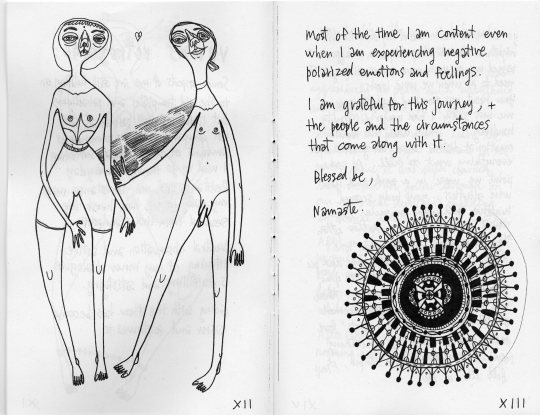 XII
most of the time I am content even
when I am experiencing negative
polarized emotions and feelings.
I am grateful for this journey, +
the people and the circumstances
that come along with it.
Blessed be,
Namaste.
XIII